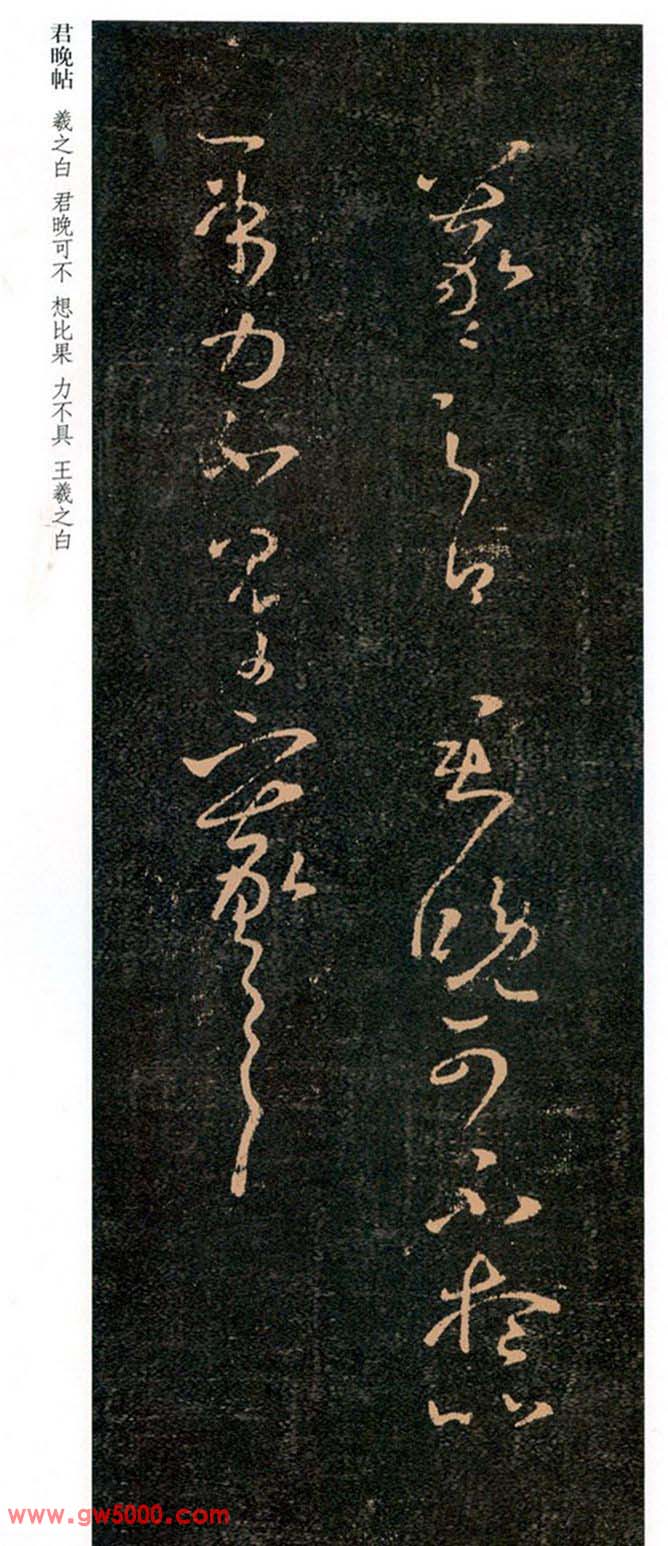 君晚帖 羲之白 君晚可不 想比果 力不具 王羲之白
羲之白君晚可不想比
果力不具王羲之白
www.gw5000.com